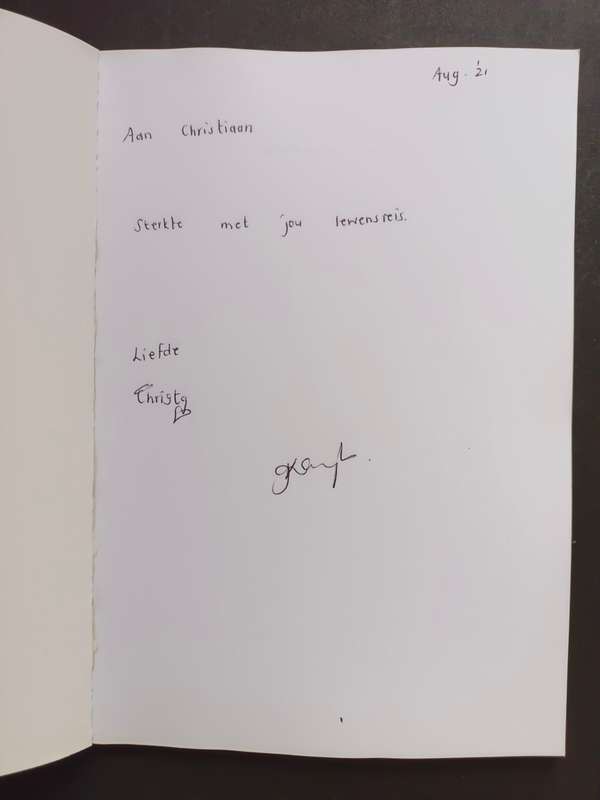 Aug. '21
Aan Christiaan
Sterkte met jou lewensreis.
Liefde
Christa